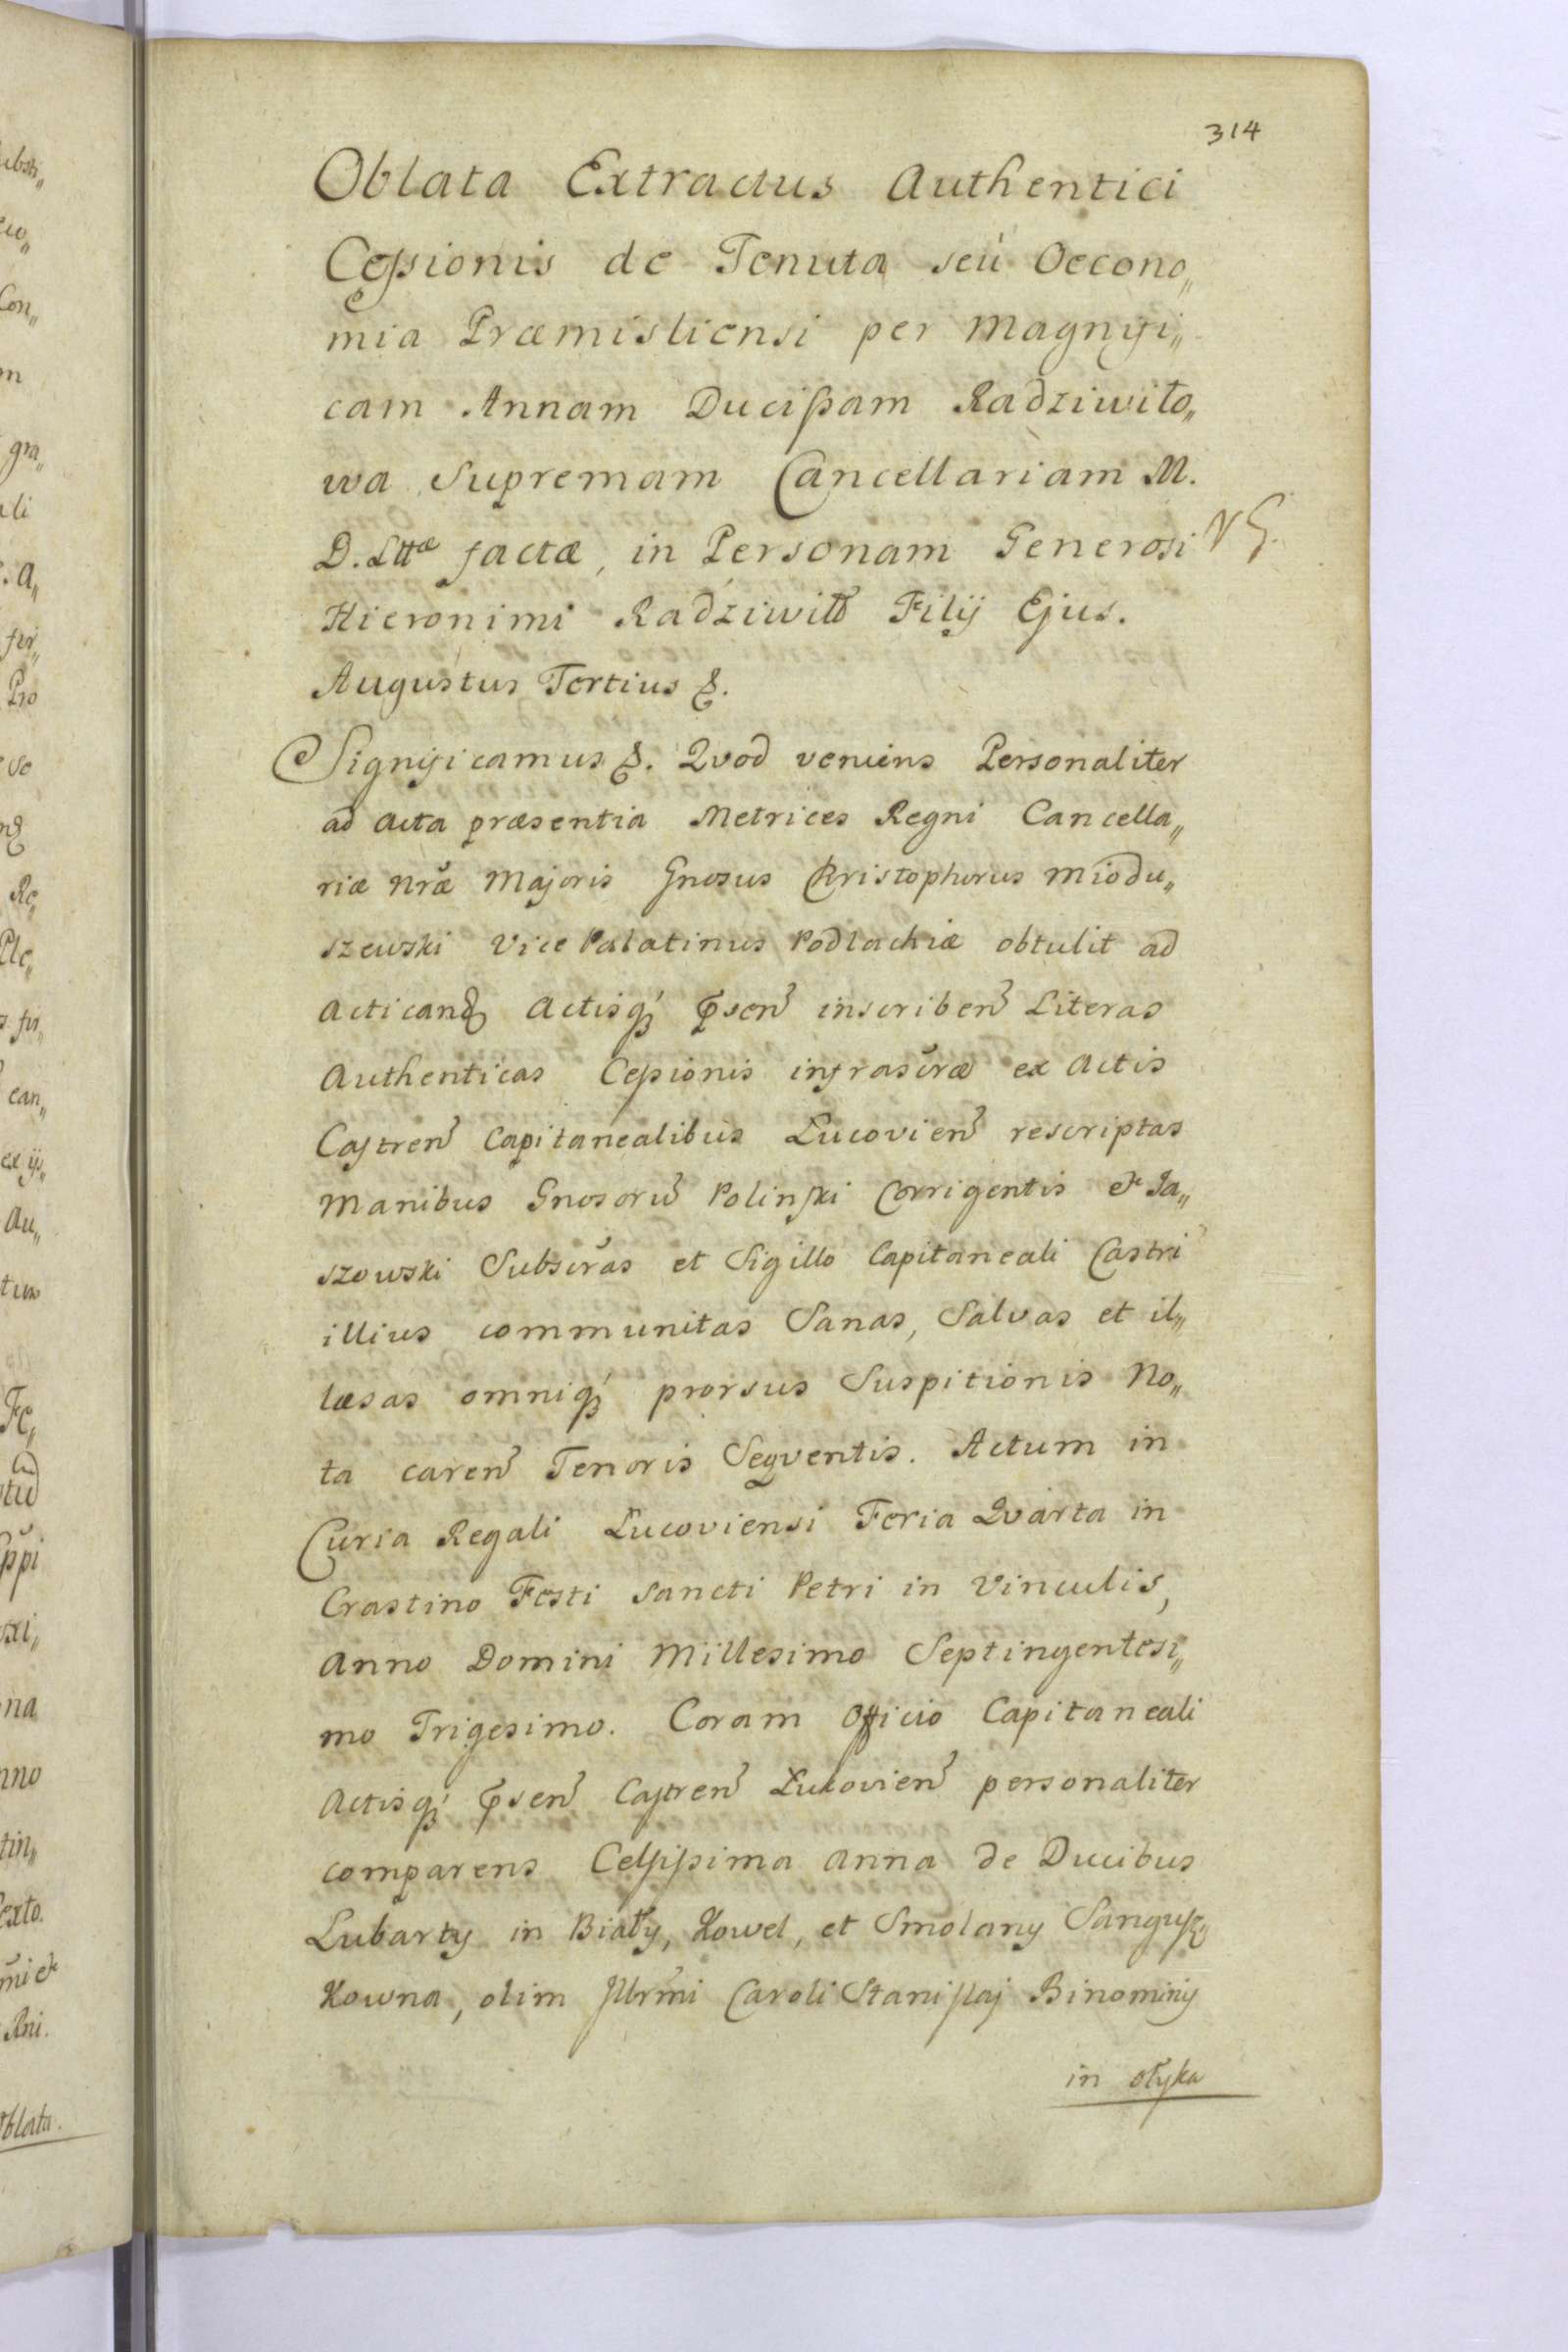 314
Oblata Extractus Authentici
Cessionis de Tenuta seú Oecono„
mia Præmisliensi per Magnifi„
cam Annam Ducissam Radziwiło„
wa Supremam Cancellariam M.
D. Lttæ factæ, in Personam Generosi
Hieronimi Radziwiłł Filij Ejus.
Augustus Tertius &.
Significamus &. Qvod veniens Personaliter
ad Acta præsentia Metrices Regni Cancella„
riæ Nræ Majoris Gnosus Christophorus Miodu„
szewski Vice Palatinus Podlachiæ obtulit ad
Acticand Actisq́ꝫ Pꝛsen inscriben Literas
Authenticas Cessionis infrascræ ex Actis
Castren Capitanealibus Lucovien rescriptas
Manibus Gnosoru Polinski Corrigentis et Ja„
szowski Subscras et Sigillo Capitaneali Castri
illius communitas Sanas, Salvas et il„
læsas omniq́ꝫ prorsus Suspitionis No„
ta caren Tenoris Seqventis. Actum in
Curia Regali Lucoviensi Feria Qvarta in
Crastino Festi Sancti Petri in Vinculis,
Anno Domini Millesimo Septingentesi„
mo Trigesimo. Coram Officio Capitaneali
Actisq́ꝫ Pꝛsen Castren Lukovien personaliter
comparens Celsissima Anna de Ducibus
Lubarty in Biały, Kowel, et Smolany Sangusz„
Kowna, olim Illrmi Caroli Stanislai Binominij
in Ołyka